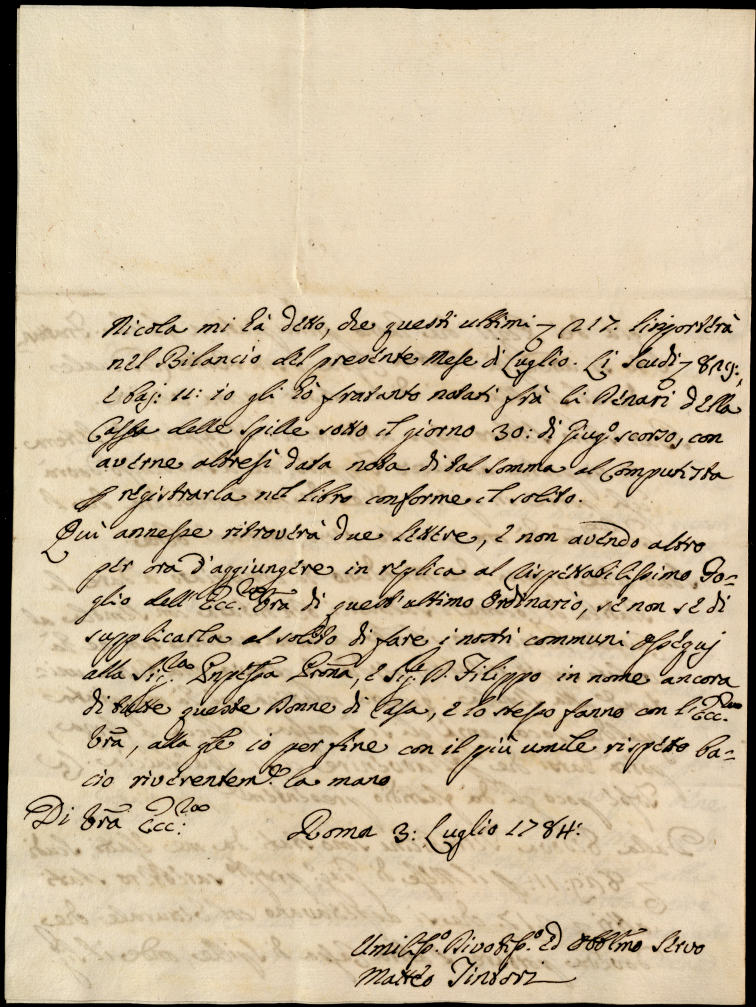 Nicola mi hà detto, che questi ultimi 217. l'inporterà
nel Bilancio del presente Mese di Luglio. Li Scudi 829:,
e baj: 11: io gli hò fratanto notati frà li Denari della
Cassa delle Spille sotto il giorno 30: di Giug.º scorso, con
averne altresì data nota di tal somma al Computista
p registrarla nel libro conforme il solito.
Quì annesse ritroverà due lettere, e non avendo altro
per ora d'aggiungere in replica al rispettabilissimo Fo=
glio dell'Ecc. Vrã di quest'ultimo Ordinario, se non se di
supplicarla al solito di fare i nostri communi ossequj
alla Sig.ra Pnpessa Prona, e Sig.re D. Filippo in nome ancora
di tutte queste Donne di Casa, e lo stesso fanno con l'Ecc.
Vrã, alla qle io per fine con il più umile rispetto ba=
cio riverentem.te la mano
Di Vrã Ecc:
Roma 3: Luglio 1784:
Umiliss.º Divotiss.º ed Obblmo Servo
Matteo Tintori